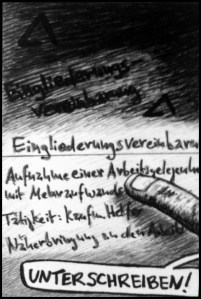 Eingliederungs-
vereinbarung
Eingliederungsvereinbarun
Aufnahme einer Arbeitsgelegenh
mit Mehraufwands
Tätigkeit: Kaufm. Helfer
Näherbringung an den Arbeit
UNTERSCHREIBEN!